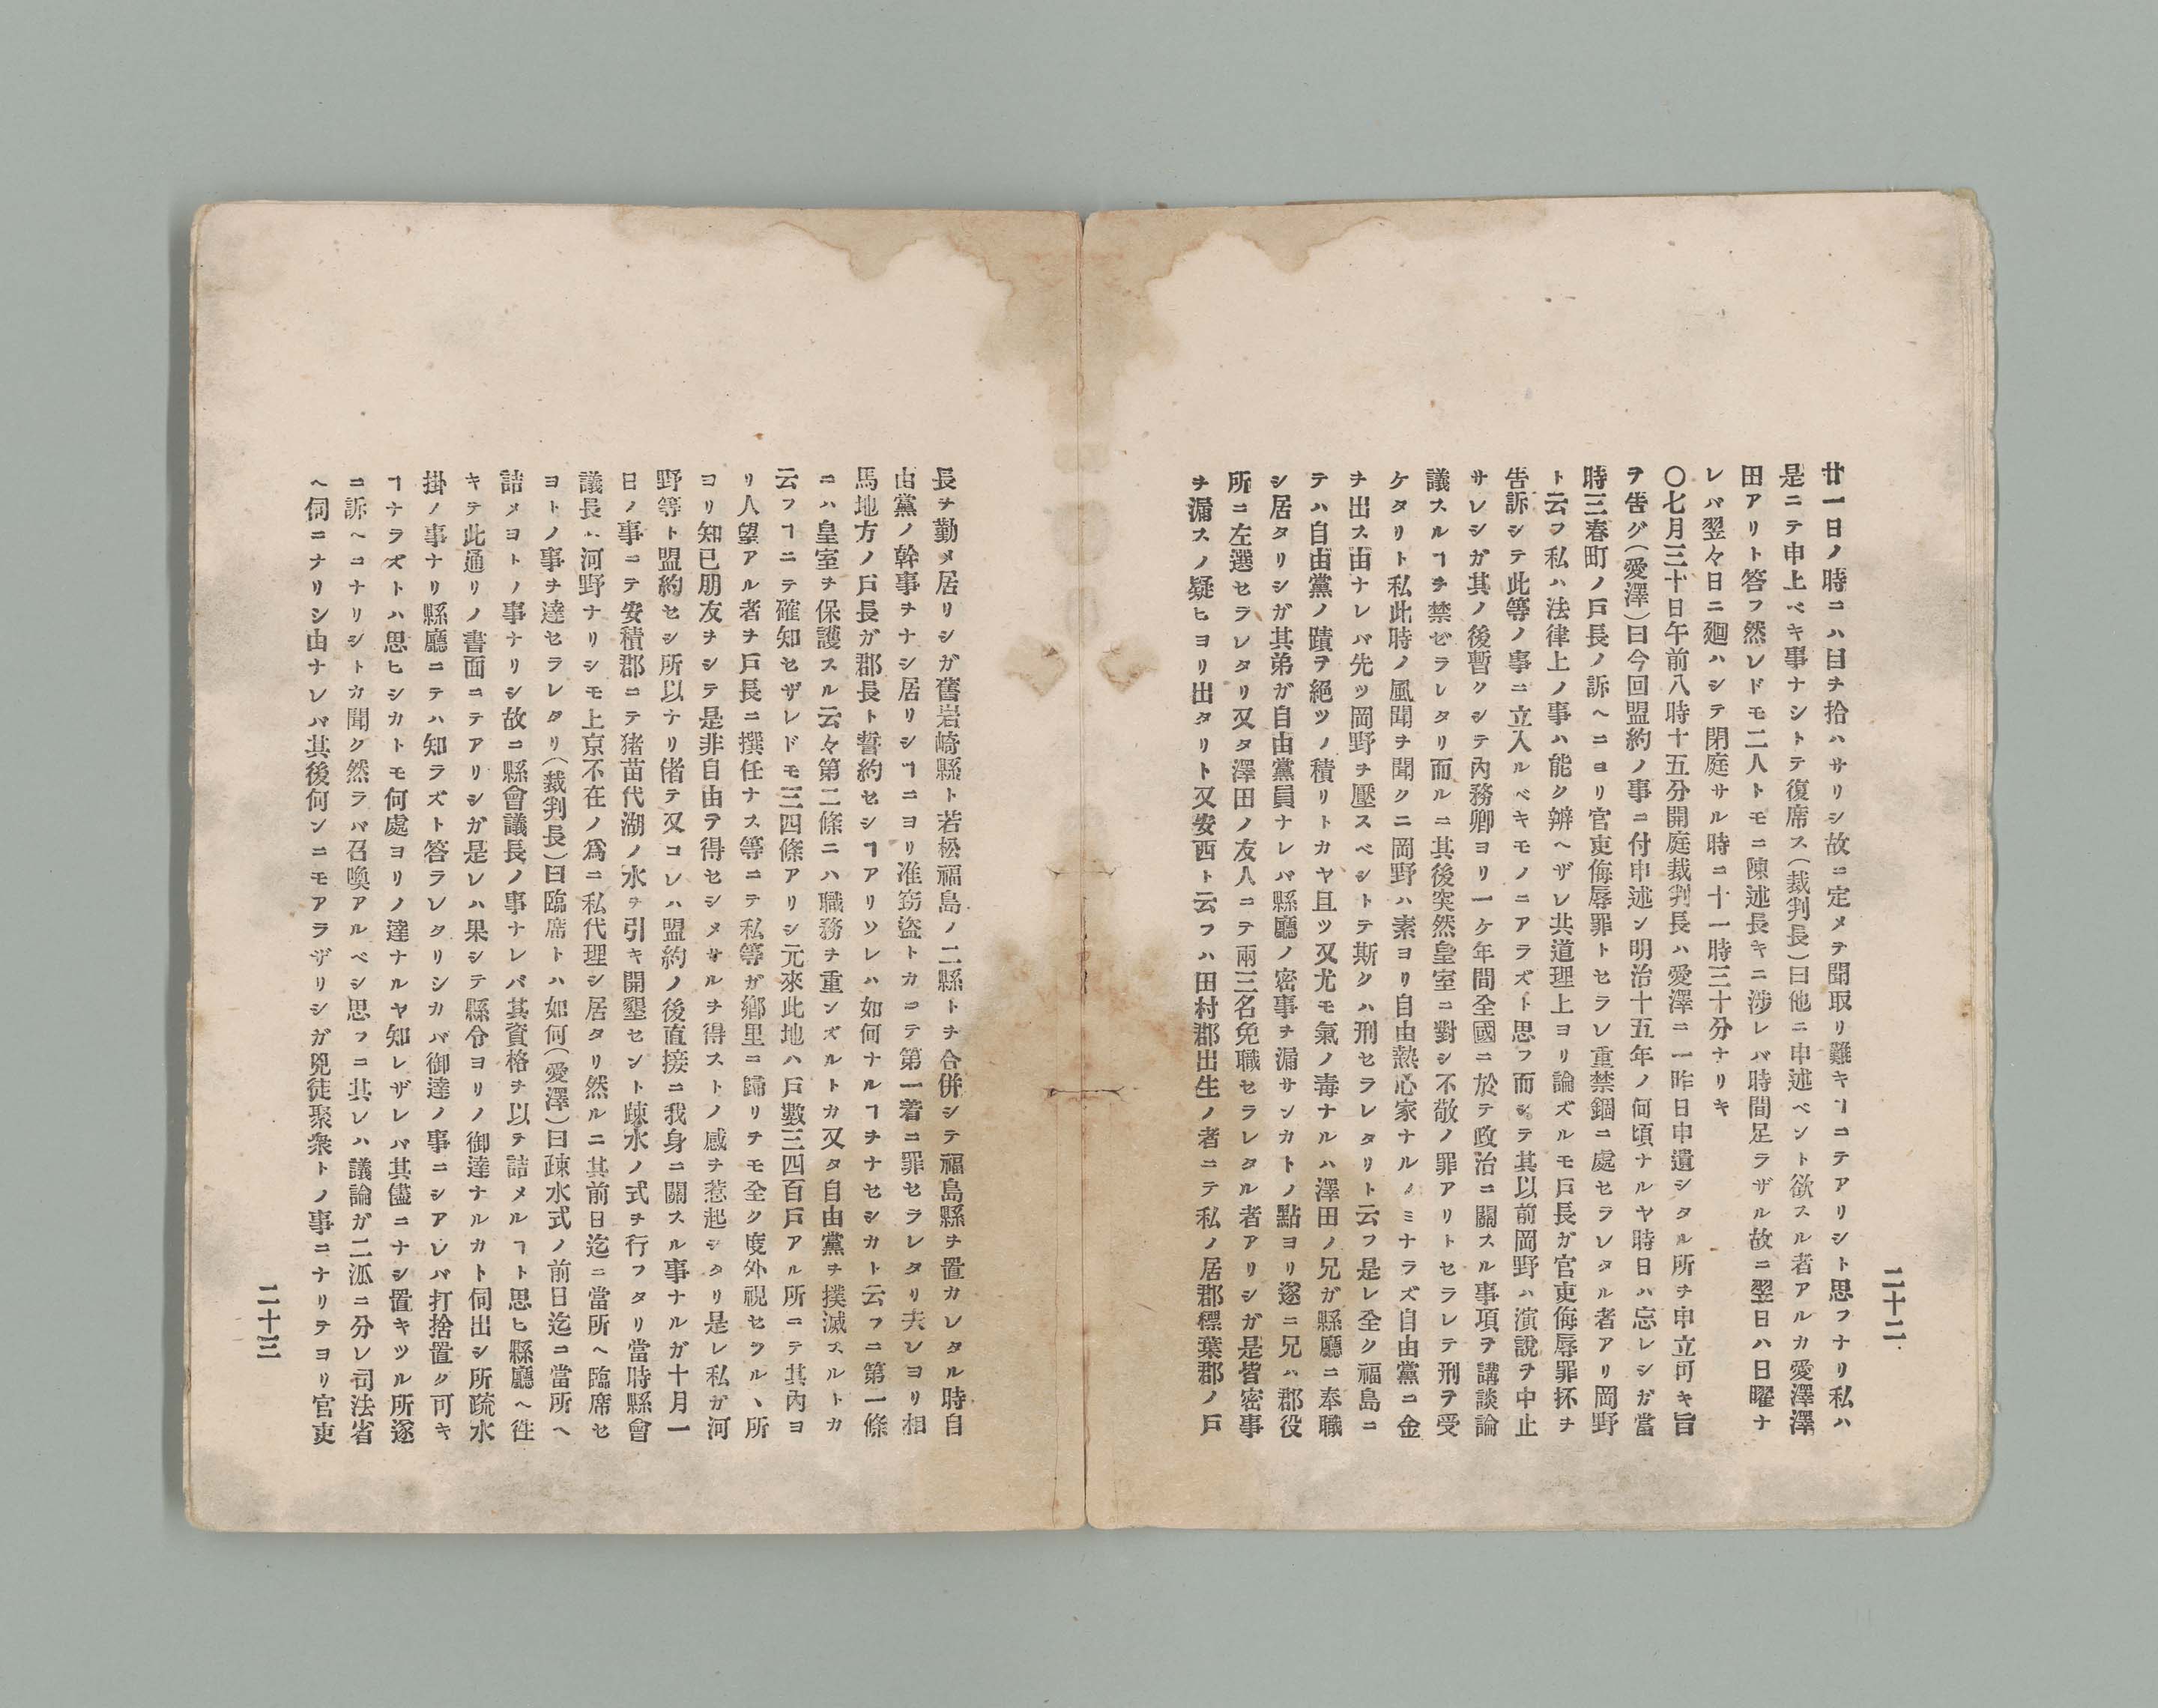 廿一日ノ時ニハ目ヲ拾ハサリシ故ニ定メテ聞取リ難キヿニテアリシト思フナリ私ハ
是ニテ申上ベキ事ナシトテ復席ス(裁判長)曰他ニ申述ベント欲スル者アルカ愛澤澤
田アリト答フ然レドモ二人トモニ陳述長キニ涉レバ時間足ラザル故ニ翌日ハ日曜ナ
レバ翌々日ニ廻ハシテ閉庭サル時ニ十一時三十分ナリキ
〇七月三十日午前八時十五分開庭裁判長ハ愛澤ニ一昨日申遺シタル所ヲ申立可キ旨
ヲ告グ(愛澤)曰今回盟約ノ事ニ付申述ン明治十五年ノ何頃ナルヤ時日ハ忘レシガ當
時三春町ノ戸長ノ訴ヘニヨリ官吏侮辱罪トセラレ重禁錮ニ處セラレタル者アリ岡野
ト云フ私ハ法律上ノ事ハ能ク辨ヘザレ共道理上ヨリ論ズルモ戸長ガ官吏侮辱罪抔ヲ
告訴シテ此等ノ事ニ立入ルベキモノニアラズト思フ而シテ其以前岡野ハ演說ヲ中止
サレシガ其ノ後暫クシテ內務卿ヨリ一ケ年間全國ニ於テ政治ニ關スル事項ヲ講談論
議スルヿヲ禁ゼラレタリ而ルニ其後突然皇室ニ對シ不敬ノ罪アリトセラレテ刑ヲ受
ケタリト私此時ノ風聞ヲ聞クニ岡野ハ素ヨリ自由熱心家ナルノミナラズ自由黨ニ金
ヲ出ス由ナレバ先ツ岡野ヲ壓スベシトテ斯クハ刑セラレタリト云フ是レ全ク福島ニ
テハ自由黨ノ蹟ヲ絕ツノ積リトカヤ且ツ又尤モ氣ノ毒ナルハ澤田ノ兄ガ縣廳ニ奉職
シ居タリシガ其弟ガ自由黨員ナレバ縣廳ノ密事ヲ漏サンカトノ點ヨリ遂ニ兄ハ郡役
所ニ左選セラレタリ又タ澤田ノ友人ニテ兩三名免職セラレタル者アリシガ是皆密事
ヲ漏スノ疑ヒヨリ出タリト又安西ト云フハ田村郡出生ノ者ニテ私ノ居郡標葉郡ノ戸
二十二
長ヲ勤メ居リシガ舊岩崎縣ト若松福島ノ二縣トヲ合併シテ福島縣ヲ置カレタル時自
由黨ノ幹事ヲナシ居リシヿニヨリ准竊盜トカニテ第一着ニ罪セラレタリ夫レヨリ相
馬地方ノ戸長ガ郡長ト誓約セシヿアリソレハ如何ナルヿヲナセシカト云フニ第一條
ニハ皇室ヲ保護スル云々第二條ニハ職務ヲ重ンズルトカ又タ自由黨ヲ撲滅スルトカ
云フヿニテ確知セザレドモ三四條アリシ元來此地ハ戸數三四百戸アル所ニテ其內ヨ
リ人望アル者ヲ戸長ニ撰任ナス等ニテ私等ガ鄕里ニ歸リテモ全ク度外視セラルヽ所
ヨリ知已朋友ヲシテ是非自由ヲ得セシメサルヲ得ストノ感ヲ惹起シタリ是レ私ガ河
野等ト盟約セシ所以ナリ偖テ又コレハ盟約ノ後直接ニ我身ニ關スル事ナルガ十月一
日ノ事ニテ安積郡ニテ猪苗代湖ノ水ヲ引キ開墾セント疎水ノ式ヲ行フタリ當時縣會
議長ハ河野ナリシモ上京不在ノ爲ニ私代理シ居タリ然ルニ其前日迄ニ當所ヘ臨席セ
ヨトノ事ヲ達セラレタリ(裁判長)曰臨席トハ如何(愛澤)曰疎水式ノ前日迄ニ當所ヘ
詰メヨトノ事ナリシ故ニ縣會議長ノ事ナレバ其資格ヲ以テ詰メルヿト思ヒ縣廳ヘ徃
キテ此通リノ書面ニテアリシガ是レハ果シテ縣令ヨリノ御達ナルカト伺出シ所疏水
掛ノ事ナリ縣廳ニテハ知ラズト答ラレタリシカバ御達ノ事ニシアレバ打捨置ク可キ
ヿナラズトハ思ヒシカトモ何處ヨリノ達ナルヤ知レザレバ其儘ニナシ置キツル所遂
ニ訴ヘニナリシトカ聞ク然ラバ召喚アルベシ思フニ其レハ議論ガ二派ニ分レ司法省
ヘ伺ニナリシ由ナレバ其後何ンニモアラザリシガ兇徒聚衆トノ事ニナリテヨリ官吏
二十三